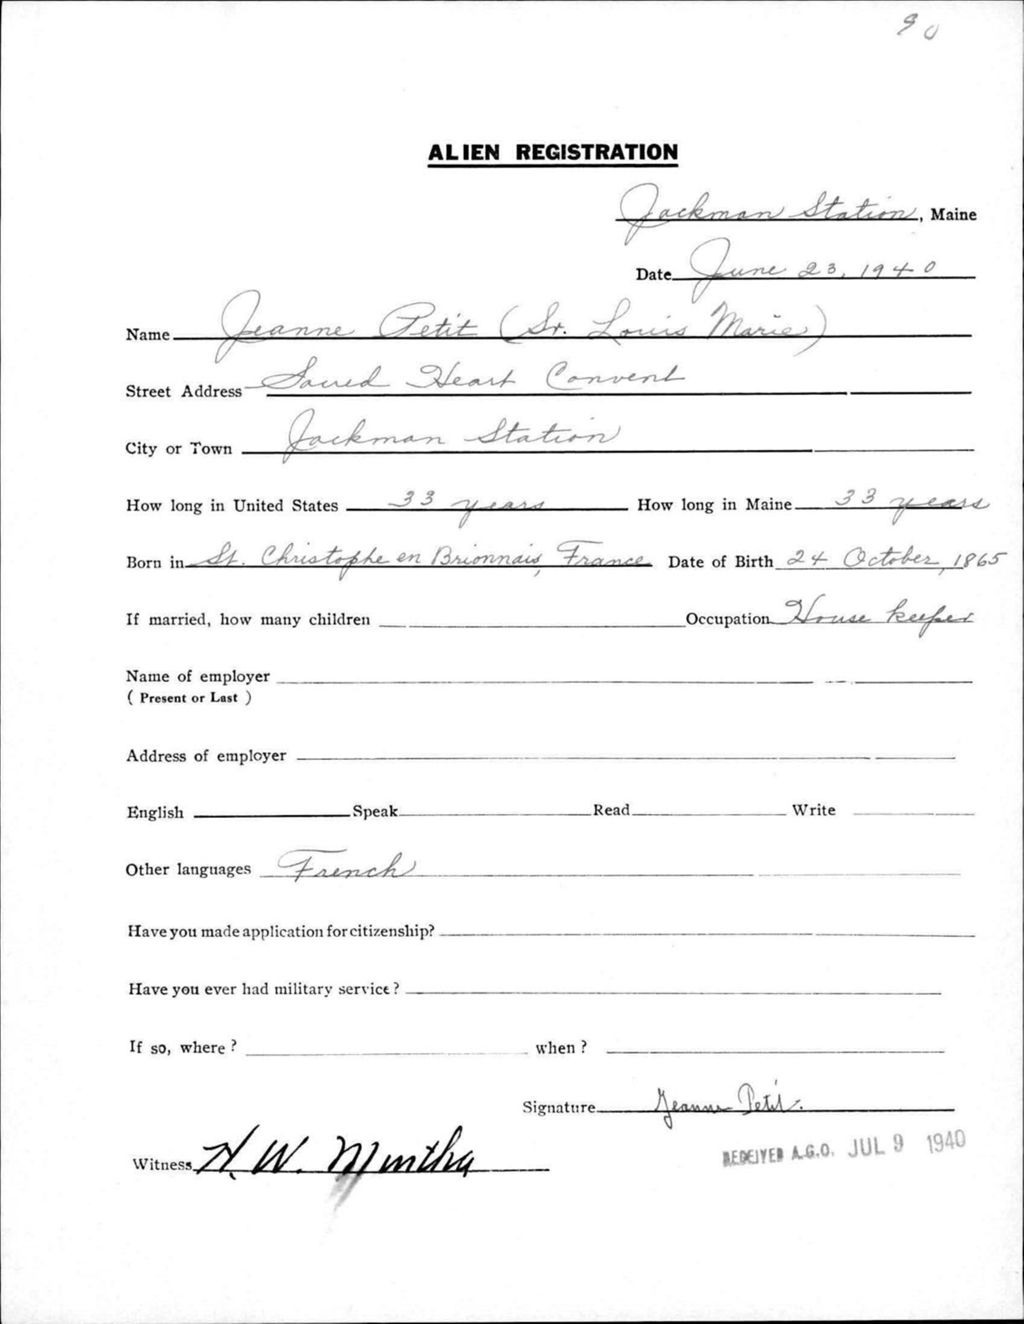 90
ALIEN REGISTRATION
Jackman Station, Maine
Date June 23, 1940
Name Jeanne Petit (Sr. Louis Marie)
Street Address Sacred Heart Convent
City or Town Jackman Station
How long in United States 33 years How long in Maine 33 years
Born in St. Christophe en Brionnais, France Date of Birth 24 October, 1865
If married, how many children Occupation House keeper
Name of employer
( Present or Last )
Address of employer
English Speak Read Write
Other languages French
Have you made application for citizenship?
Have you ever had military service ?
If so, where ? when ?
Signature Jeanne Petit.
Witness H. W.
RECEIVED A.G.O. JUL 9 1940